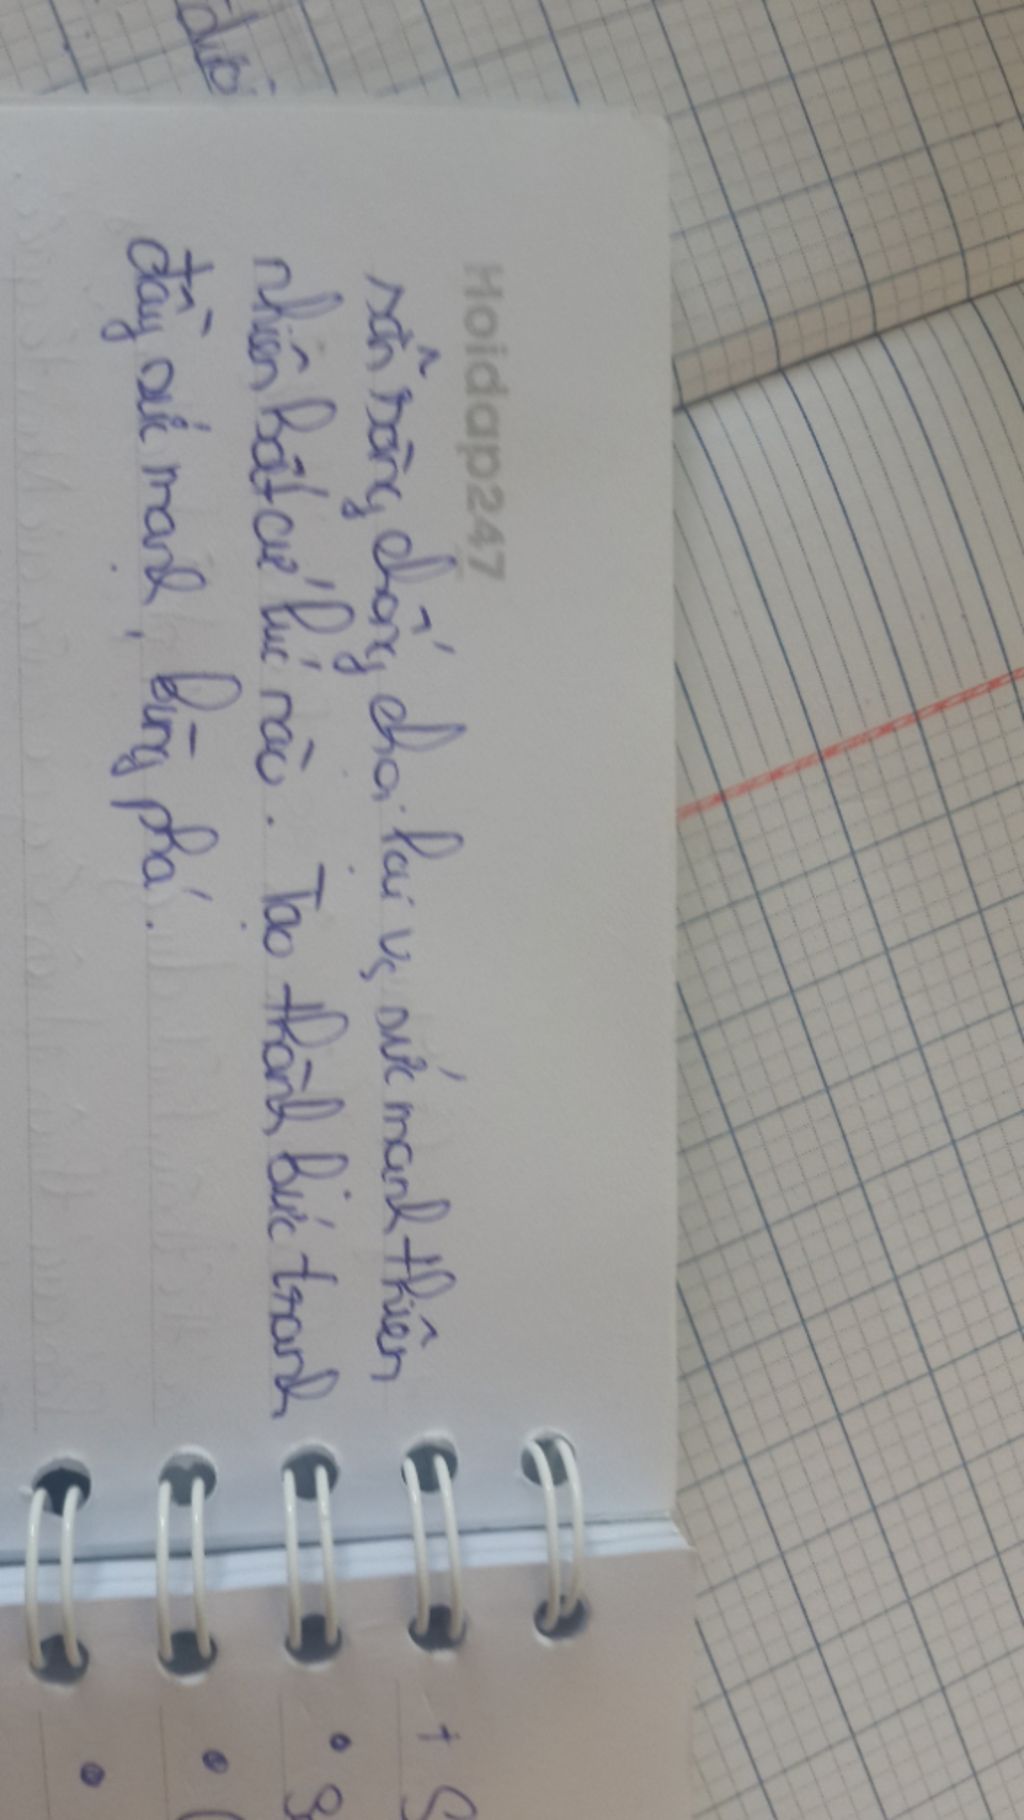 dưới
Hoidap247
sẵn sàng chống chọi lại vs sức mạnh thiên
nhiên bất cứ lúc nào. Tạo thành bức tranh
đầy sức mạnh, bùng phá.
+ S